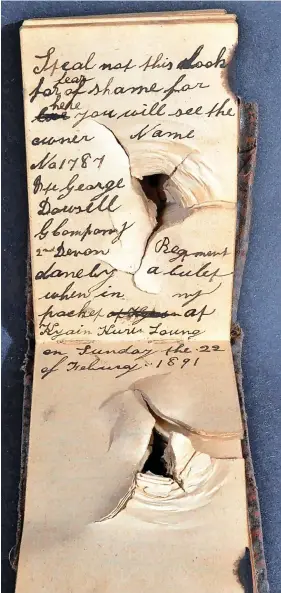 Steal not this Book
for fear of shame for
here you will see the
owner Name
No 1787
Pte George
Dowsell
G Company
2nd Devon Regment
done by a bulet
when in my
pocket at
Kyain Kurie Toung
on Sunday the 22
of Feburg 1891